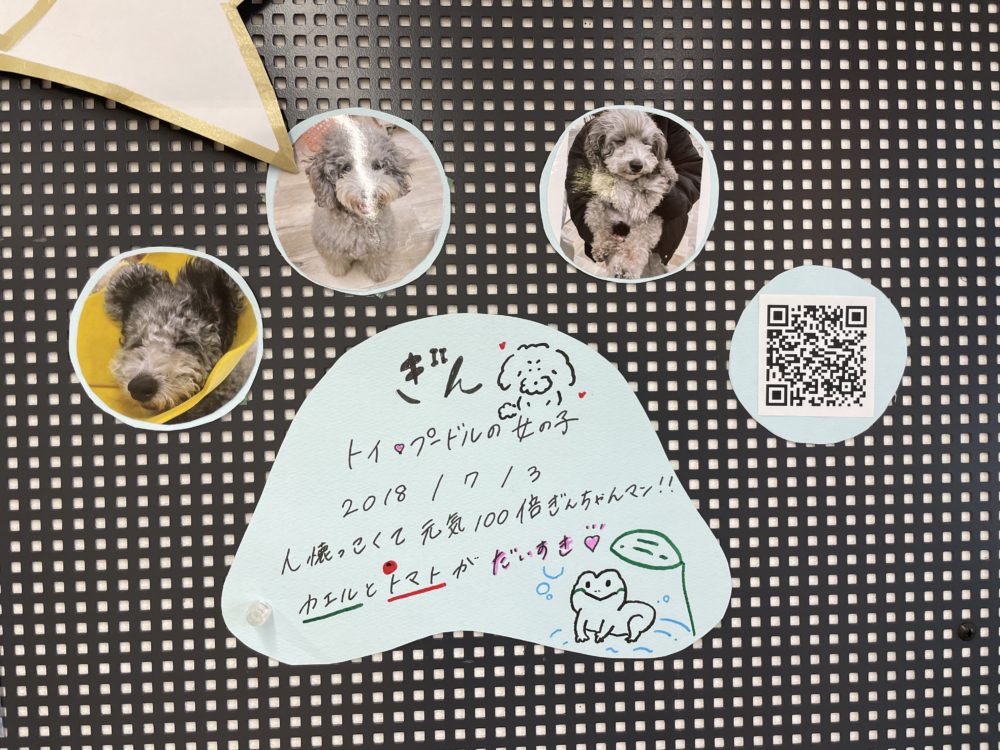 ぎん
トイ♥プードルの女の子
2018 / 7 / 3
人懐っこくて元気100倍ぎんちゃんマン!!
カエルとトマトがだいすき♡